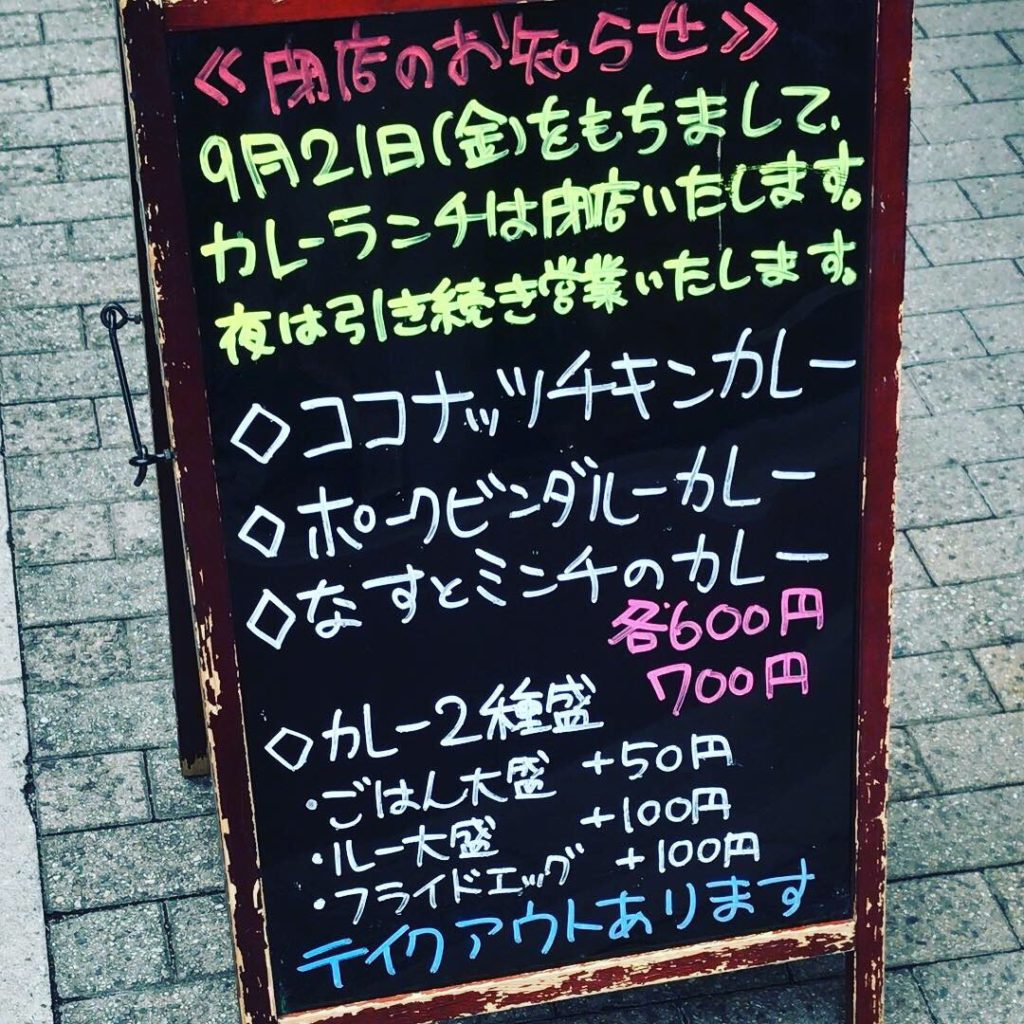 ≪閉店のお知らせ≫
9月21日(金)をもちまして、
カレーランチは閉店いたします。
夜は引き続き営業いたします。
◇ココナッツチキンカレー
◇ポークビンダルーカレー
◇なすとミンチのカレー
各600円
◇カレー2種盛 700円
・ごはん大盛 +50円
・ルー大盛 +100円
・フライドエッグ +100円
テイクアウトあります